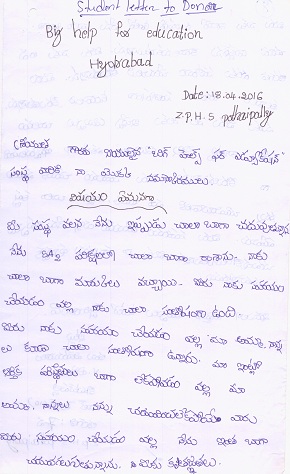 Student letter to Donor
Big help for education
Hyderabad
Date: 18.04.2016
Z.P.H.S pothaipally
గౌరవ "బిగ్ హెల్ప్ ఫర్ ఎడ్యుకేషన్"
సంస్థ వారికి నా యొక్క నమస్కారములు.
విషయం ఏమనగా
మీ సంస్థ వలన నేను ఇప్పుడు చాలా బాగా చదువుతున్నాను
నేను SA2 పరీక్షలలో చాలా బాగా రాశాను. నాకు
చాలా బాగా మార్కులు వచ్చాయి. మీరు నాకు సహాయం
చేయడం వల్ల నాకు చాలా సంతోషంగా ఉంది.
మీరు నాకు సహాయం చేయడం వల్ల మా అమ్మ, నాన్న
లు కూడా చాలా సంతోషంగా ఉన్నారు. మా ఇంట్లో
ఆర్థిక పరిస్థితులు బాగా లేకపోవడం వల్ల మా
అమ్మ, నాన్నలు నన్ను
మీరు సహాయం చేయడం వల్ల నేను ఇంత బాగా
చదువగలుగుతున్నాను. మీకు కృతజ్ఞతలు.